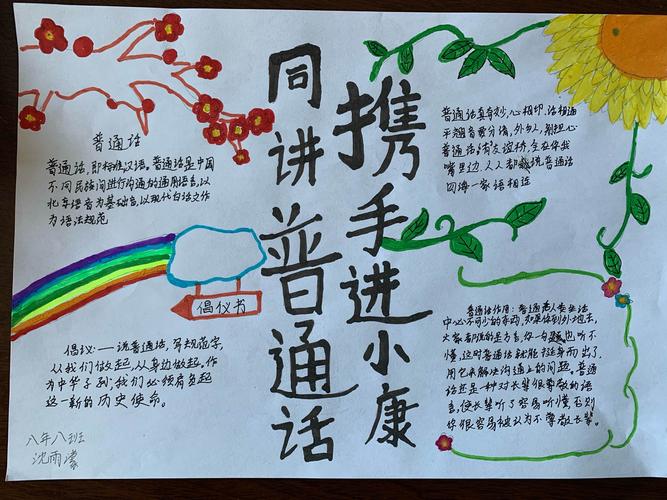 同讲普通话
携手进小康
普通话
普通话,即标准汉语。普通话是中国
不同民族间进行沟通的通用语言,以
北京语音为基础音,以现代白话文作
为语法规范
倡仪书
倡仪:——说普通话,写规范字,
从我们做起,从身边做起,作
为中华子到,我们必须肩负起
这一新的历史使命。
八年八班
沈雨
普通话真奇妙,心相印,话相通
平翘音要分清,外乡人,别担心
普通话,有友谊桥,在你我
嘴里边,人人都说普通话
四海一家语相连
普通话作用:普通是人类生活
中必不可少的东西,如果你到外地去,
大家都用的是方言,你一句也听不
懂,这时普通话就能挺身而出了,
用它来解决沟通上的问题。普通
话还是一种对长辈很尊敬的语
言,使长辈听了容易听懂,否则
你很容易被认为不尊敬长辈。